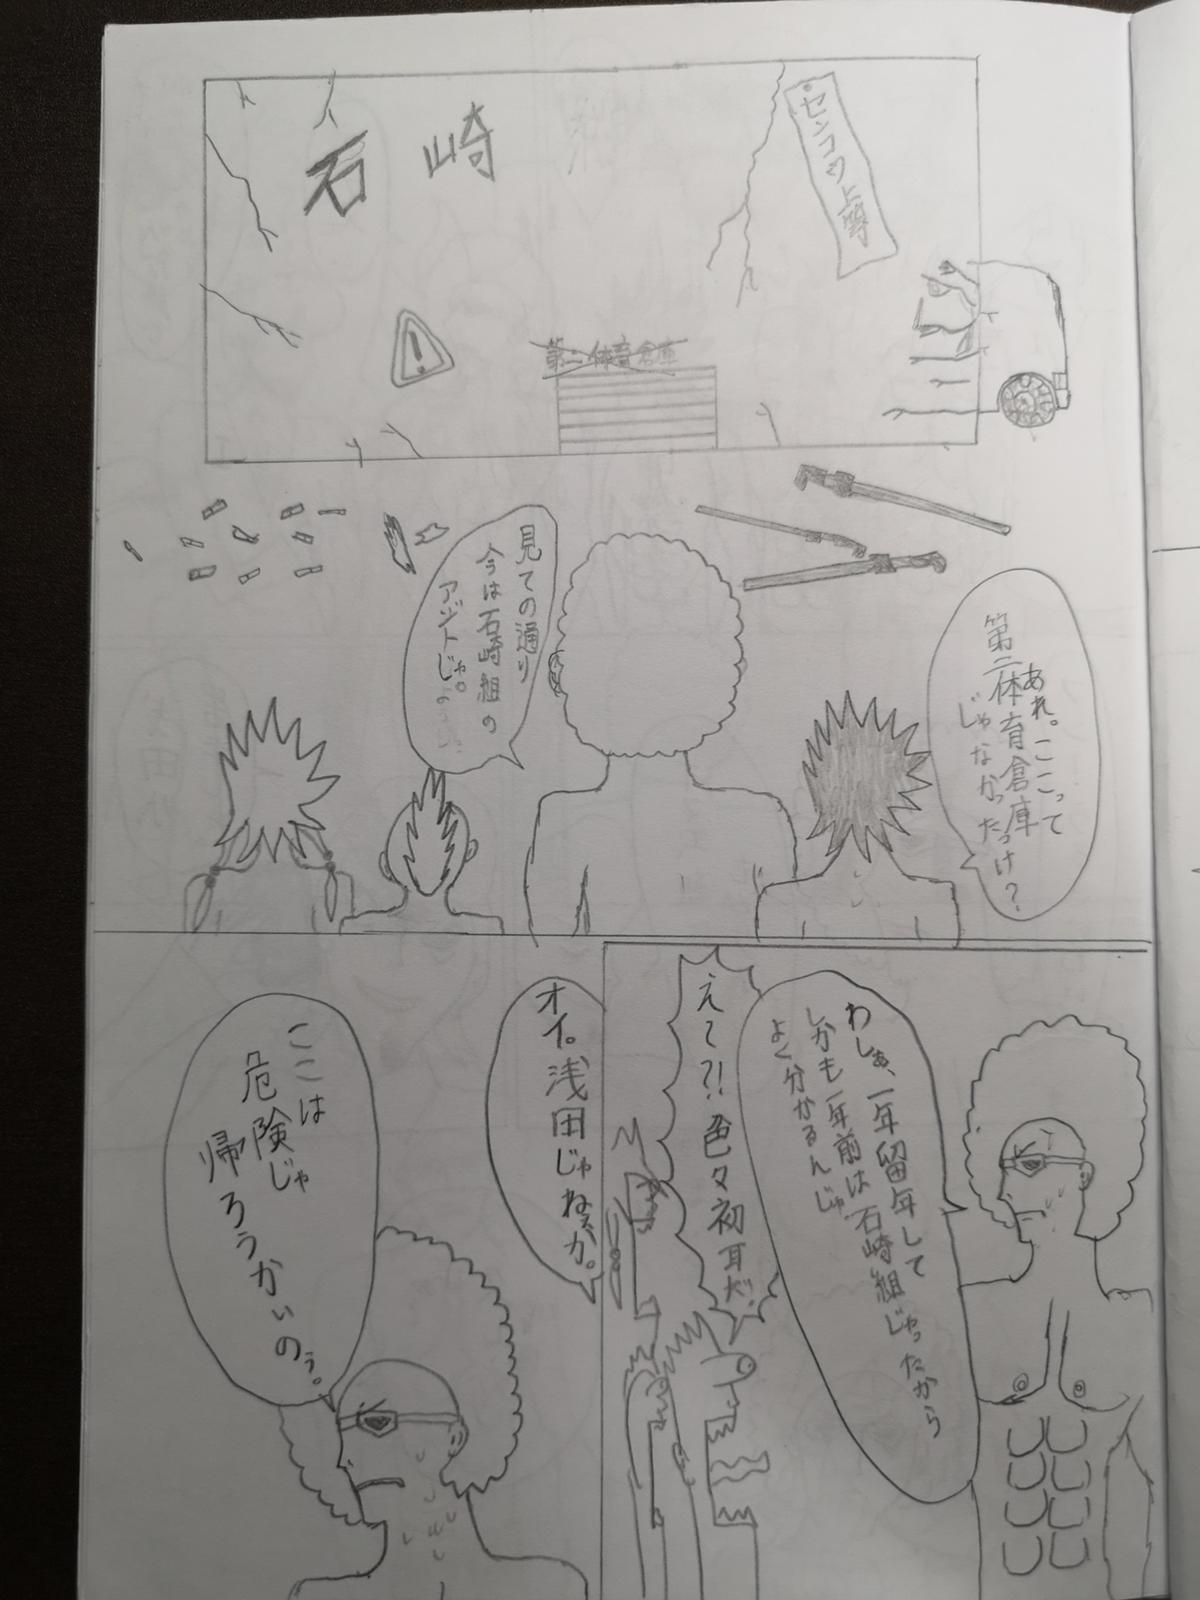 石崎
センコウ上等
第二体育倉庫
あれ。ここって
第二体育倉庫
じゃなかったっけ?
見ての通り
今は石崎組の
アジトじゃ。
わしぁ、一年留年して
しかも一年前は石崎組じゃったから
よく分かるんじゃ
えて?!色々初耳だ。
オイ。浅田じゃねぇか。
ここは
危険じゃ
帰ろうかいのぅ。